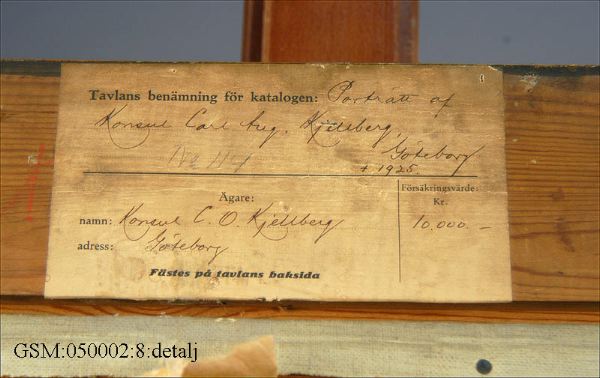 Tavlans benämning för katalogen: Porträtt af
Konsul Carl Aug. Kjellberg,
Göteborg
No 114
† 1925.
Ägare:
Försäkringsvärde:
Kr.
namn: Konsul C. O. Kjellberg
10.000.-
adress: Göteborg
Fästes på tavlans baksida
GSM:050002:8:detalj